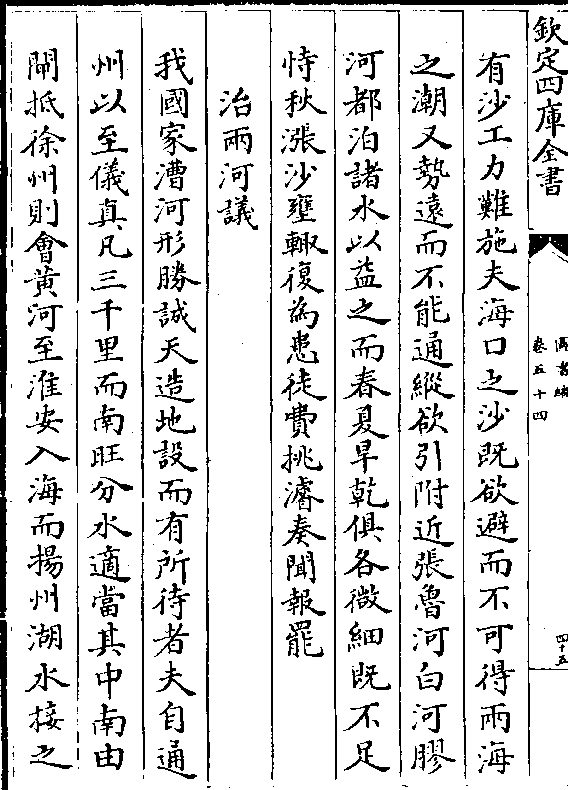 欽定四庫全書
圖書編
卷五十四
四十五
有沙工力難施夫海口之沙既欲避而不可得兩海
之潮又勢遠而不能通縱欲引附近張魯河白河膠
河都泊諸水以益之而春夏旱乾俱各微細既不足
恃秋漲沙壅輙復為患徒費挑濬奏聞報罷
治兩河議
我國家漕河形勝誠天造地設而有所待者夫自通
州以至儀真凡三千里而南旺分水適當其中南由
閘抵徐州則會黄河至淮安入海而揚州湖水接之